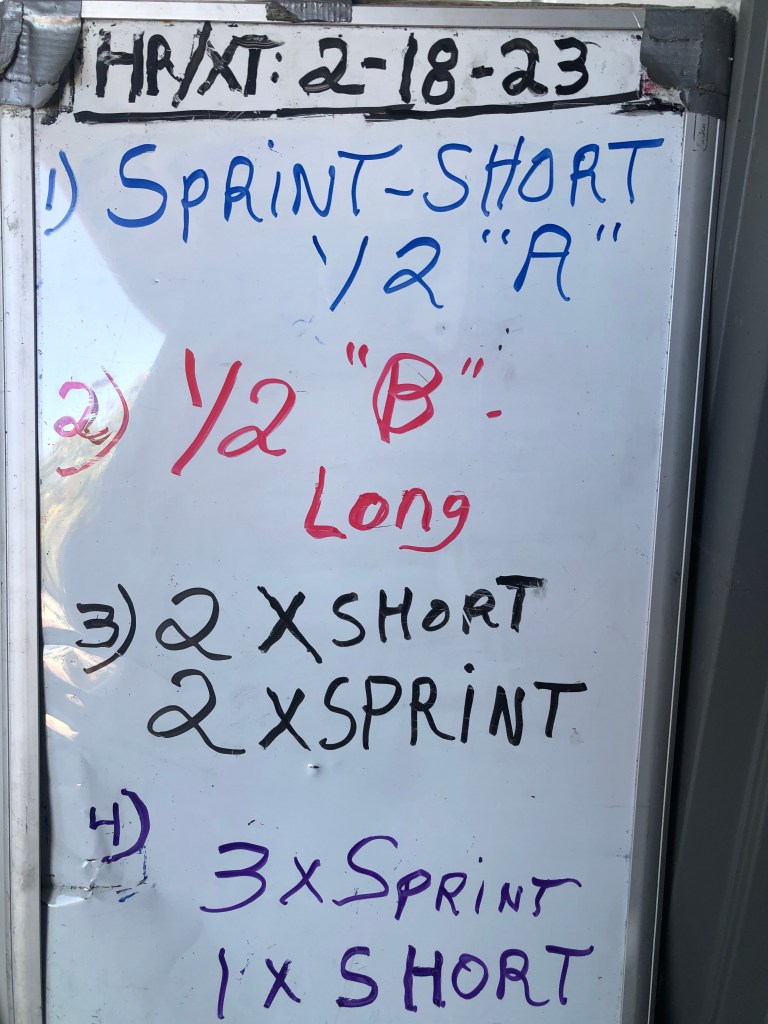 HR/XT: 2-18-23
1) SPRINT-SHORT
1/2 "A"
2) 1/2 "B"-
Long
3) 2 X SHORT
2 X SPRINT
4)
3 x SPRINT
1 X SHORT